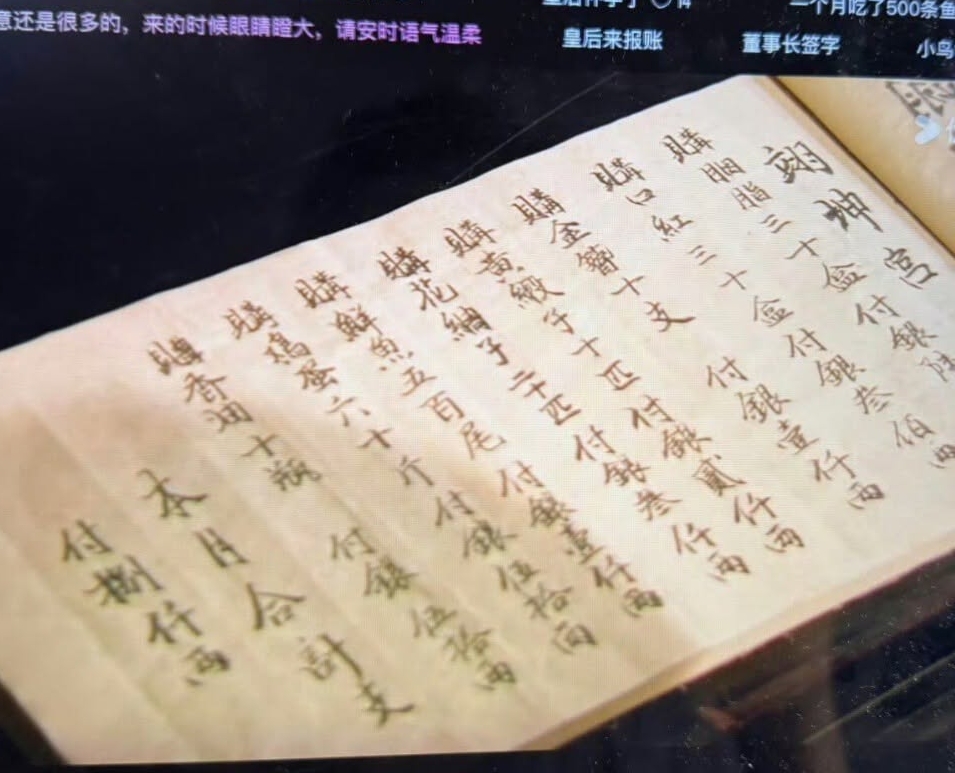 意还是很多的，来的时候眼睛瞪大，请安时语气温柔
一个月吃了500条鱼
皇后来报账
董事长签字
小鸟
翊坤宮
購胭脂三十盒付銀陸
購口紅三十盒付銀叁伯兩
購金簪十支付銀壹仟兩
購黃緞子十匹付銀貳仟兩
購花紬子二十匹付銀叁仟兩
購鮮魚五百尾付銀壹仟兩
購鷄蛋六十斤付銀伍拾兩
購香油十瓶付銀伍拾兩
本月合計支
付捌仟兩